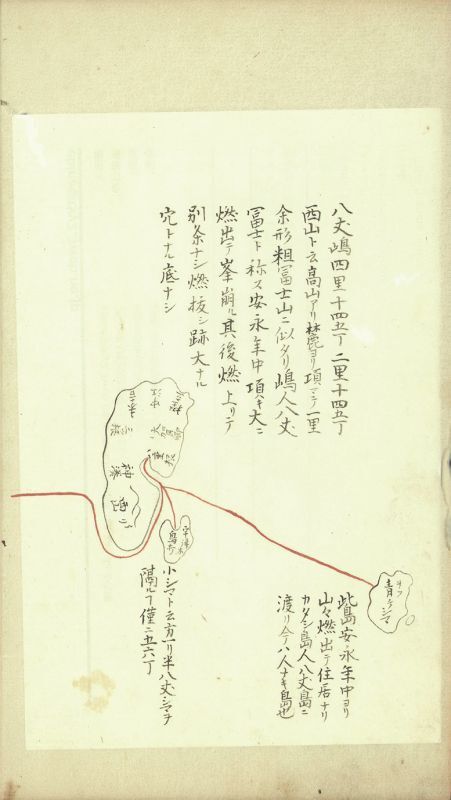 八丈嶋四里十四五丁二里十四五丁
西山ト云高山アリ麓ヨリ頂マテ一里
余形粗冨士山ニ似タリ嶋人八丈
冨士ト称ス安永年中頂キ大ニ
燃出テ峯崩ル其後燃上リテ
別条ナシ燃抜シ跡大ナル
穴トナル底ナシ
神湊
西山
小シマト云方一リ半八丈シマヲ
隔ルヿ僅ニ五六丁
青ケシマ
此島安永年中ヨリ
山々燃出テ住居ナリ
カタシ島人八丈島ニ
渡リ今ハ人ナキ島也